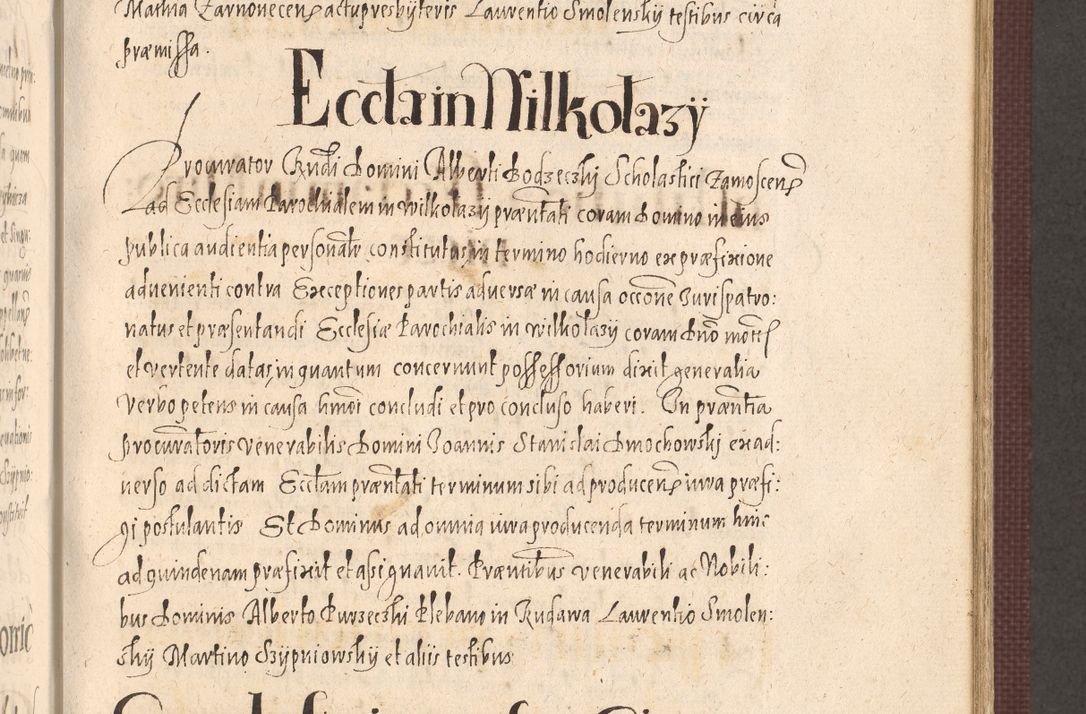 Mathia Zarnonecen̄ actu presbyteris Laurentio Smolenskÿ testibus circa
præmissa.
Eccla in Wilkolazÿ
Procurator Rn̄di Domini Alberti Bodzeczkj Scholastici Zamoscen̄
ad Ecclesiam Parochialem in Wilkolazÿ præn̄tati coram Domino in eius
publica audientia personalr̄ constitutus, in termino hodierno ex præfixione
advenienti contra Exceptiones partis adversæ in causa occōne Iuris patro:
natus et præsentandi Ecclesiæ Parochialis in Wilkolazÿ coram Dn̄o
et vertente datas, in quantum concernunt possessorium dixit generalia
verbo petens in causa hm̄oi concludi et pro concluso haberi. In præn̄tia
procuratoris venerabilis Domini Ioannis Stanislai Dmochowskj ex ad:
verso ad dictam Ecclam præn̄tati terminum sibi ad producen̄ iura præfi:
gi postulantis Et Dominus ad omnia iura producenda terminum hinc
ad quindenam præfixit et assignavit. Præn̄tibus venerabili ac Nobili:
bus Dominis Alberto Purzeczki Plebano in Rudawa Laurentio Smolen:
skÿ Martino Szÿpniowskÿ et aliis testibus